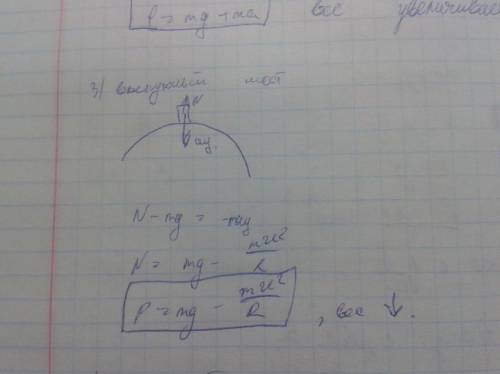 P = mg + ma вес увеличивае
3) выпуклый мост
N
aц.
N - mg = -maц
N = mg - mv²/R
P = mg - mv²/R , вес ↓.